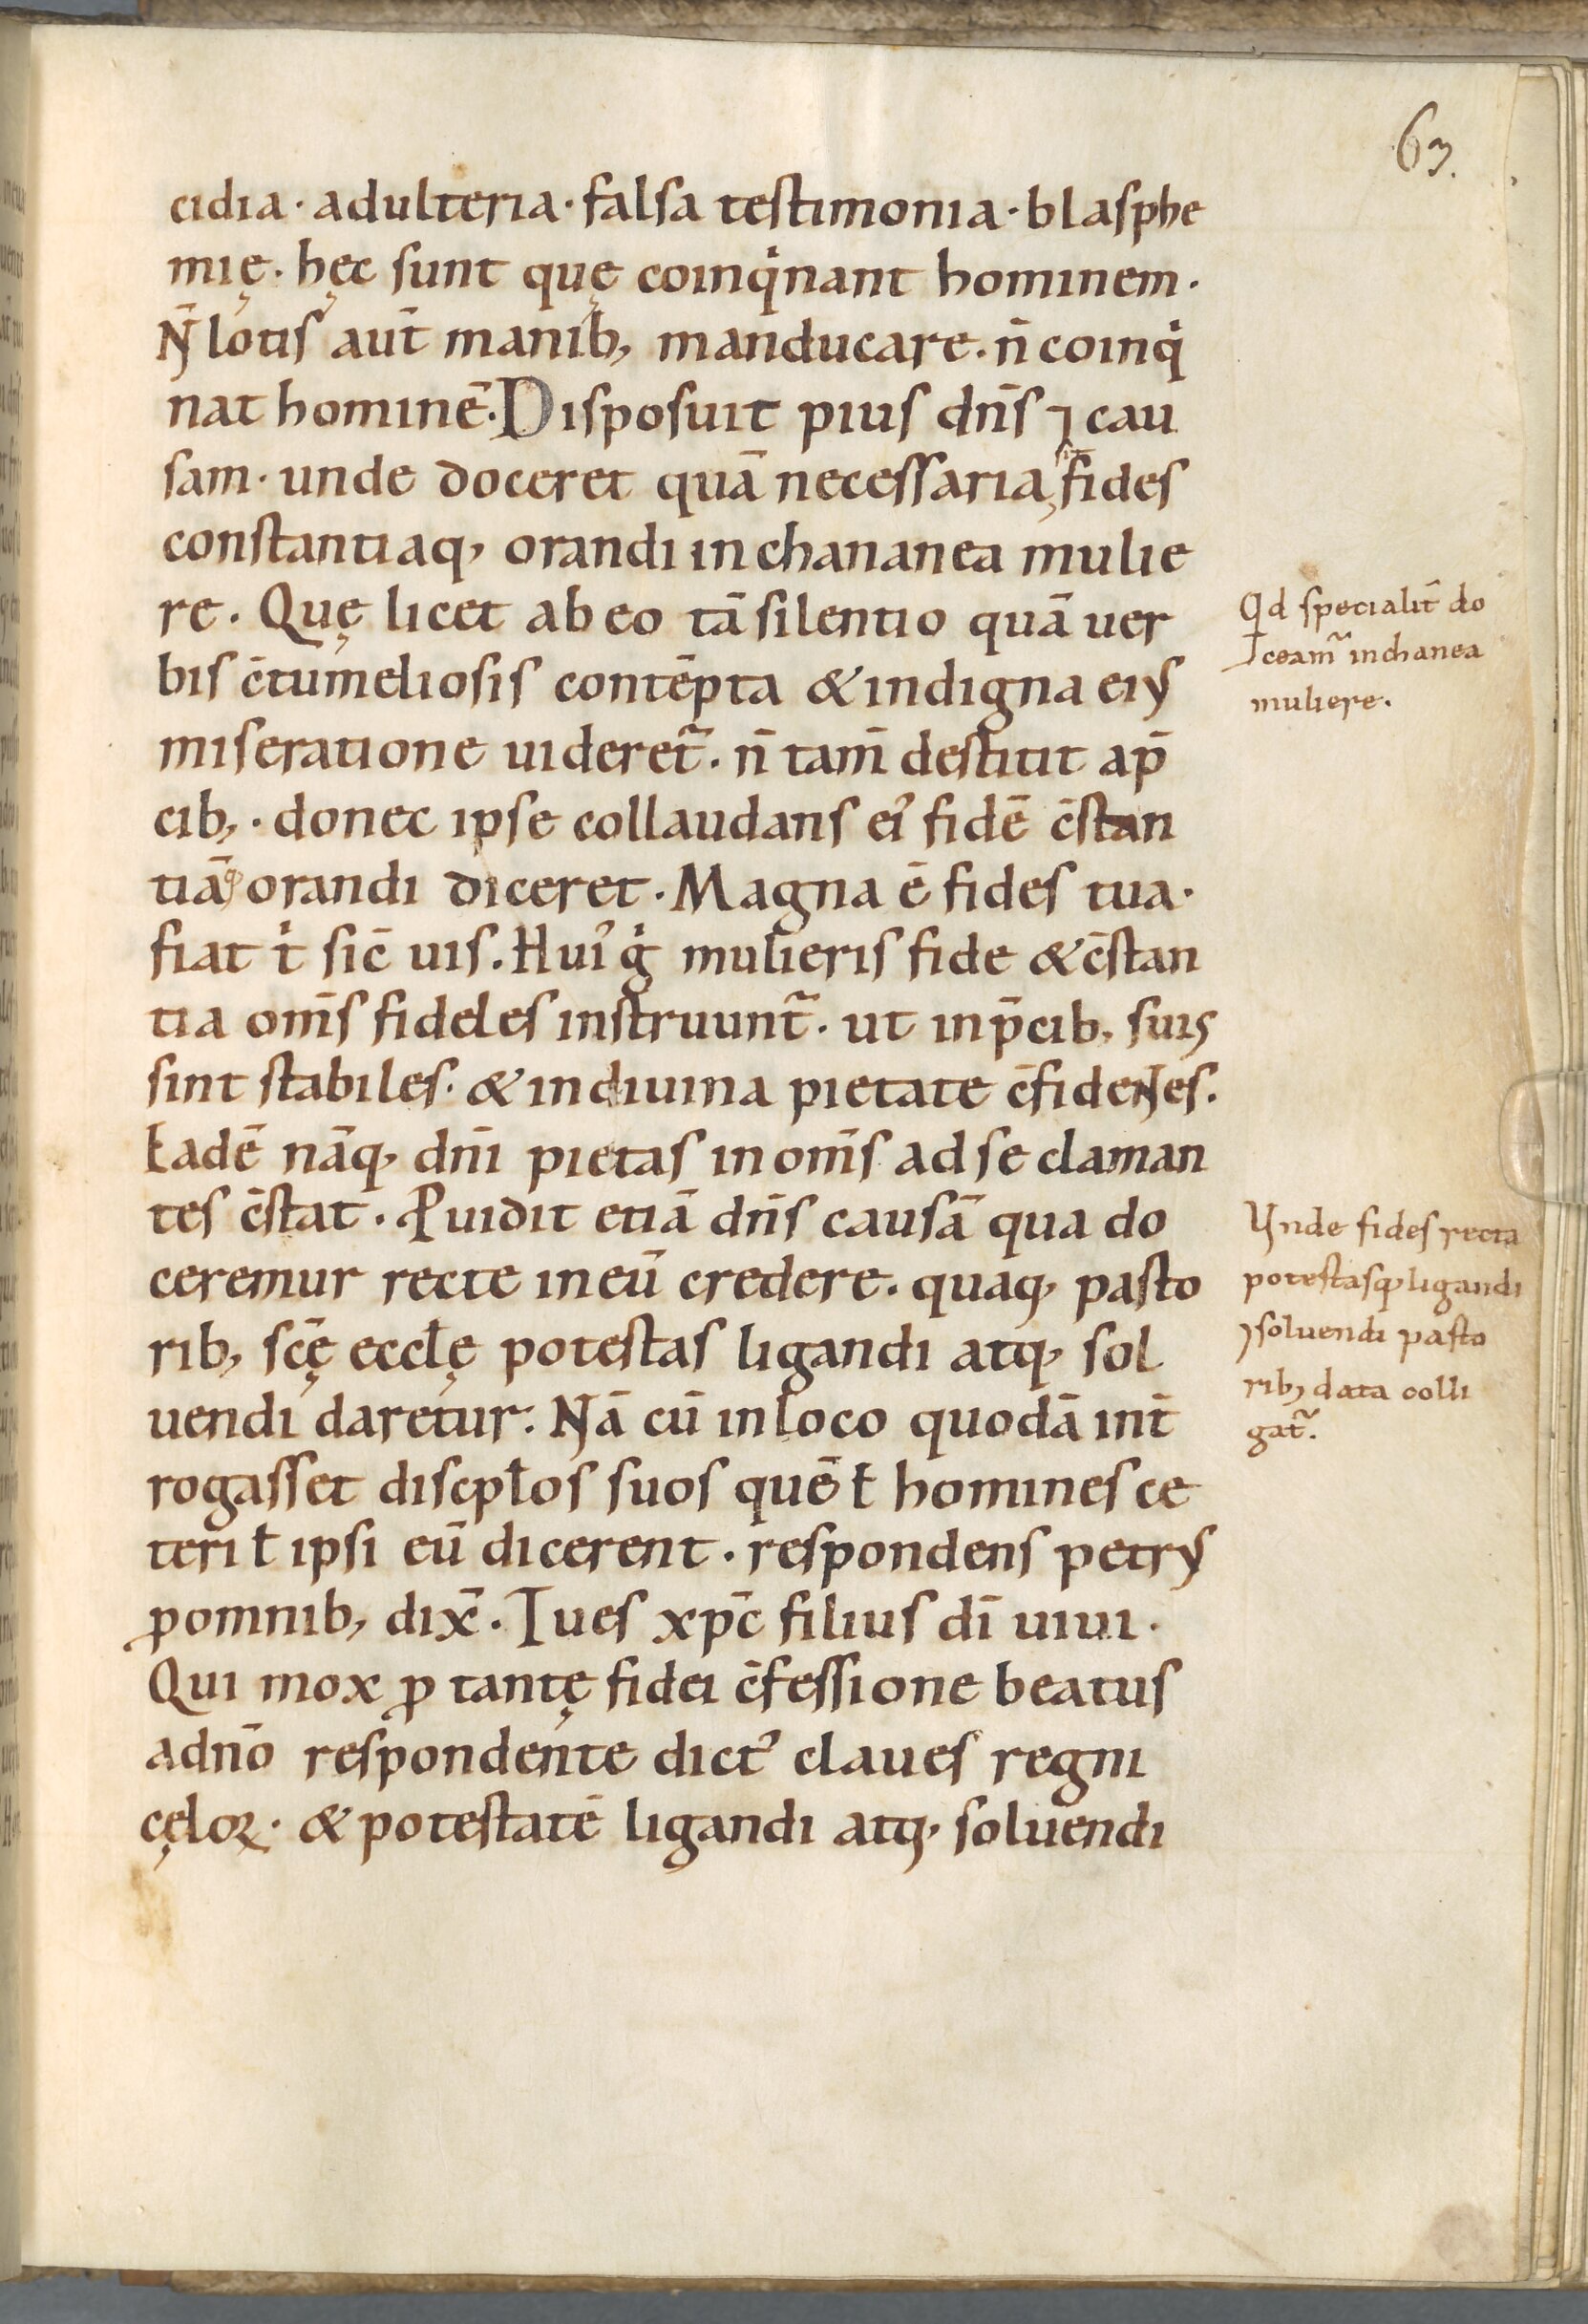 63.
cidia · adulteria · falsa testimonia · blasphe
mię · hęc sunt quę coinqͥnant hominem ·
N̄ lotis aut̄ manib; manducare · n̄ coinqͥ
nat hominē · Disposuit pius dn̄s ⁊ cau
sam · unde doceret quā necessaria sit fides
constantiaq; orandi in chananea mulie
re · Quę licet ab eo tā silentio quā uer
bis c̄tumeliosis contēpta & indigna eiꝰ
miseratione uideret᷑ · n̄ tam̄ destitit a p̄
cib; · donec ipse collaudans eiꝰ fidē c̄stan
tiāq; orandi diceret · Magna ē fides tua ·
fiat tͥ sic̄ uis · Huiꝰ gͥ mulieris fide & c̄stan
tia om̄s fideles instruunt᷑ · ut in p̄cib; suis
sint stabiles · & in diuina pietate c̄fidentes ·
Eadē nāq; dn̄i pietas in om̄s ad se claman
tes c̄stat · P̄uidit etiā dn̄s causā qua do
ceremur recte in eū credere · quaq; pasto
rib; sc̄ę eccłę potestas ligandi atq; sol
uendi daretur · Nā cū in loco quodā int̄
rogasset discipłos suos quē ł homines ce
teri ł ipsi eū dicerent · respondens petrꝰ
ꝓ omnib; dix̄ · Tu es xp̄c filius dī uiui ·
Qui mox ꝓ tantę fidei c̄fessione beatus
a dn̄o respondente dictꝰ claues regni
cęloꝝ · & potestatē ligandi atq; soluendi
Qd specialit̄ do
ceam᷑ in chanea
muliere.
Vnde fides recta
potestasq; ligandi
⁊ soluendi pasto
rib; data colli
gat᷑.